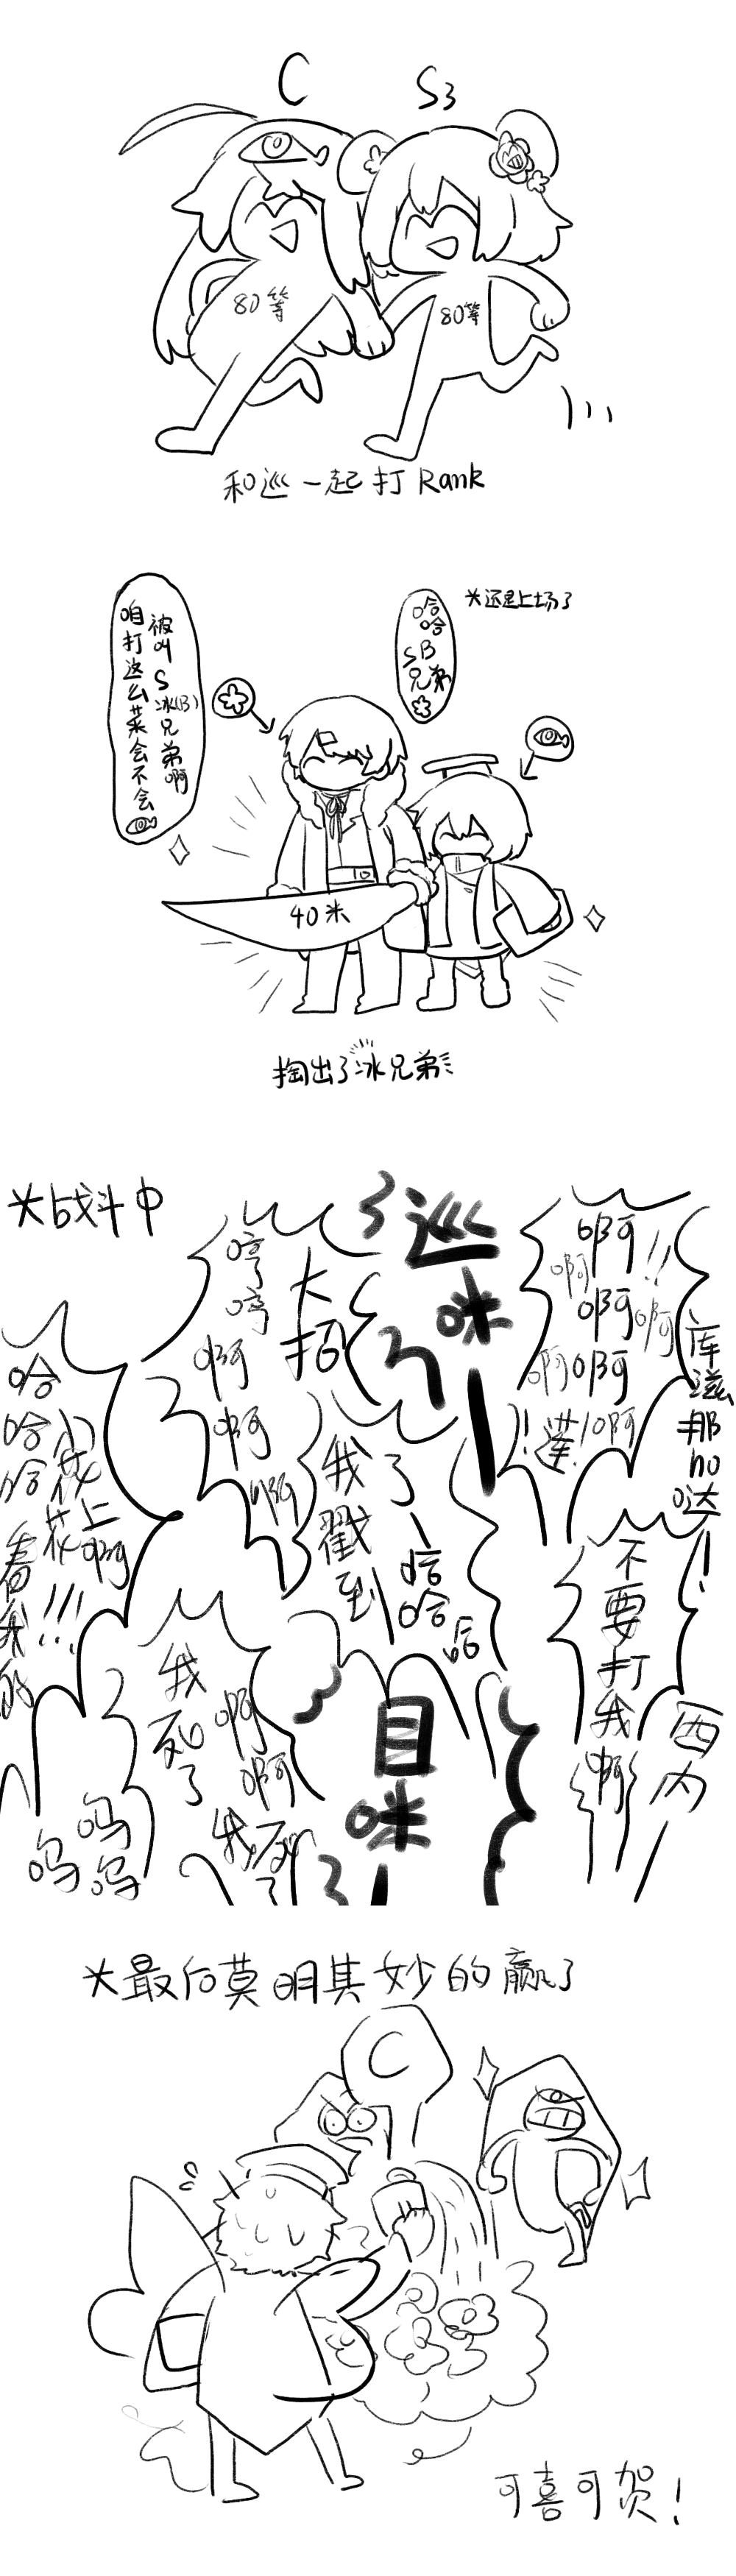 C
S3
80等
80等
和巡一起打Rank
*还是上场了
被叫S冰(B)兄弟啊
咱打这么菜会不会
哈哈
SB
兄弟
40米
掏出了冰兄弟
*战斗中
巡
咪
啊啊啊啊啊啊
啊!莲!
库滋那hu哒!
大招
哼哼啊啊啊
哈哈哈小花花上啊
看我的!!!
我戳到了
哈哈哈
不要打我啊
西内
目
咪
我死了啊啊
我死了
呜呜呜呜
*最后莫明其妙的赢了
C
可喜可贺!